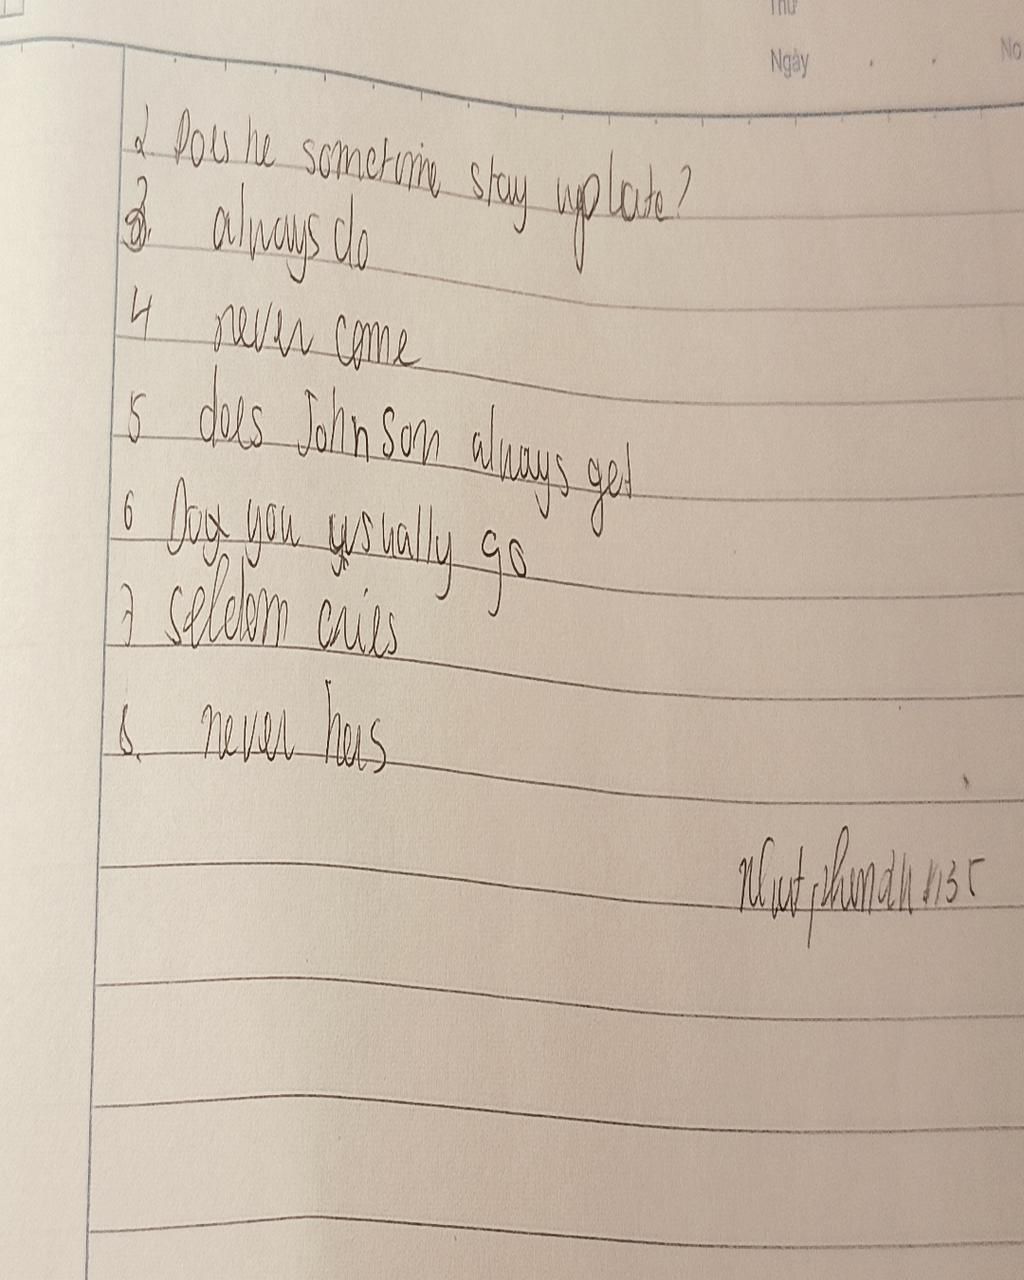 Thứ
Ngày . . No
2 Does he sometime stay up late?
3. always do
4 never come
5 does Johnson always get
6 Do you usually go
7 seldom cries
8. never has